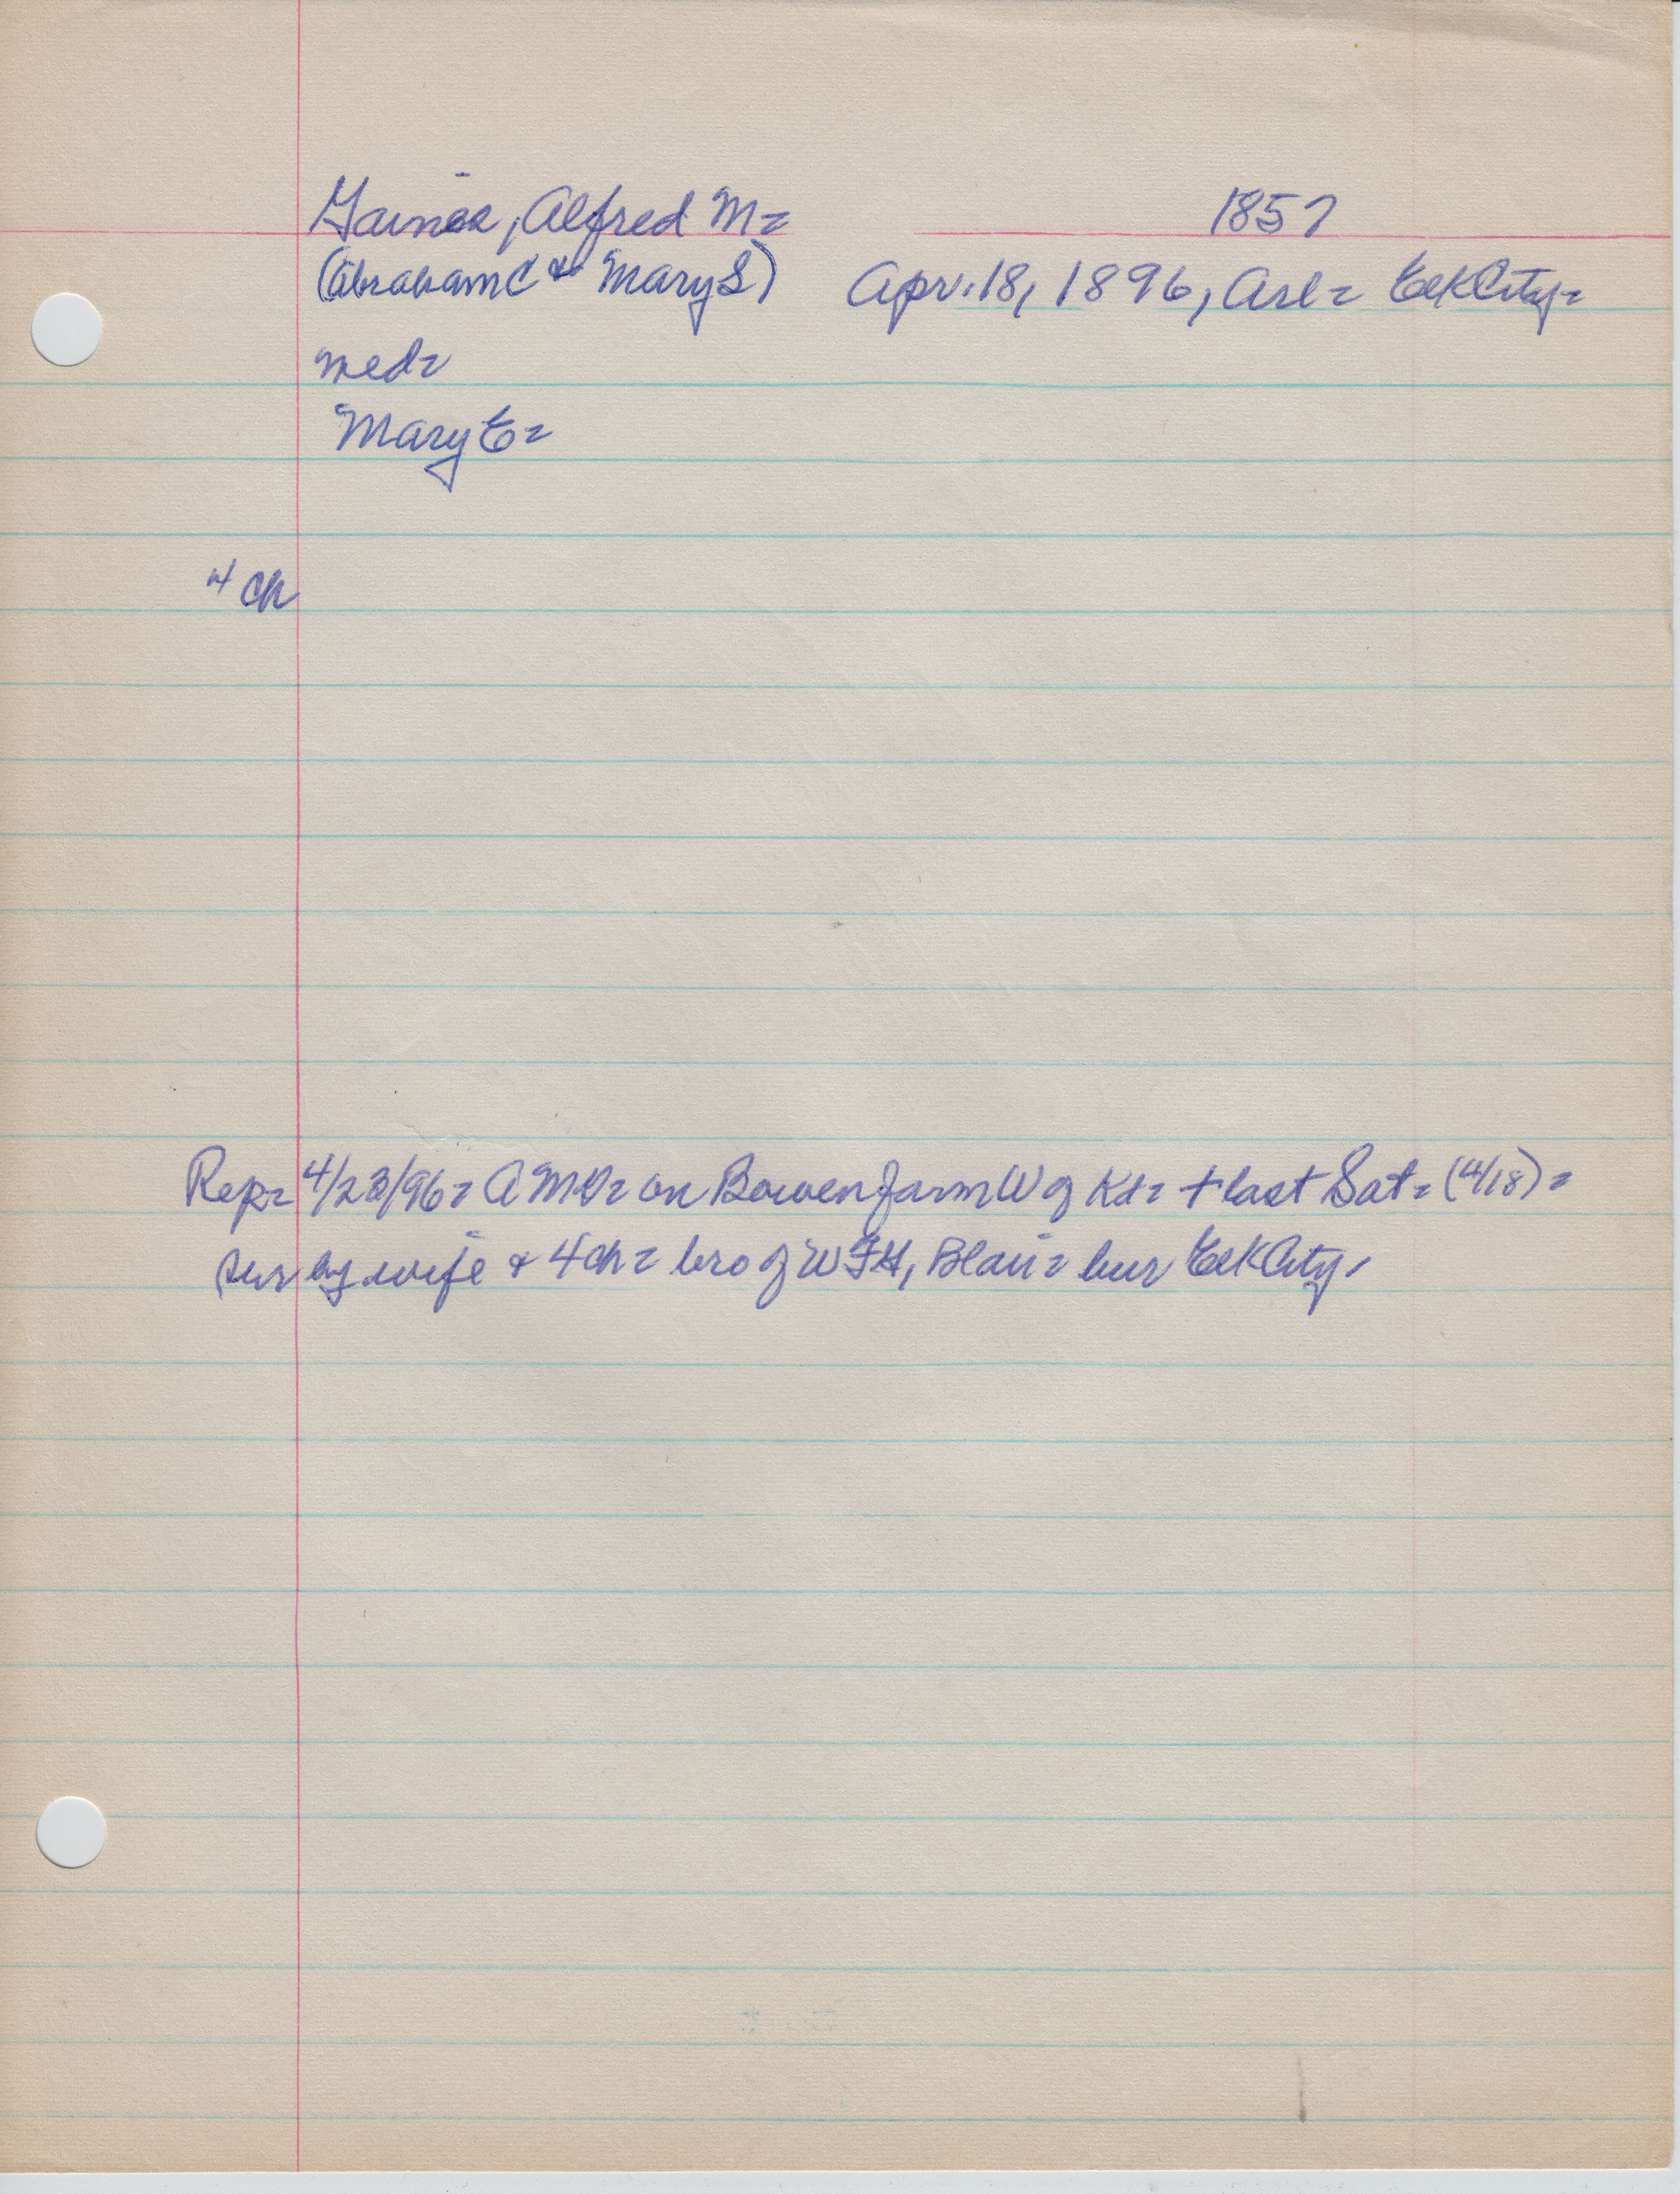 Haines, Alfred M= 1857
(Abraham C & Mary S) Apr. 18, 1896, Arl= Elk City=
med=
Mary E=
4 ch
Rep= 4/23/96= A M = on Bowen farm W of Kt= + last Sat= (4/18)=
sur by wife & 4 ch= bro of W F H, Blair= bur Elk City,